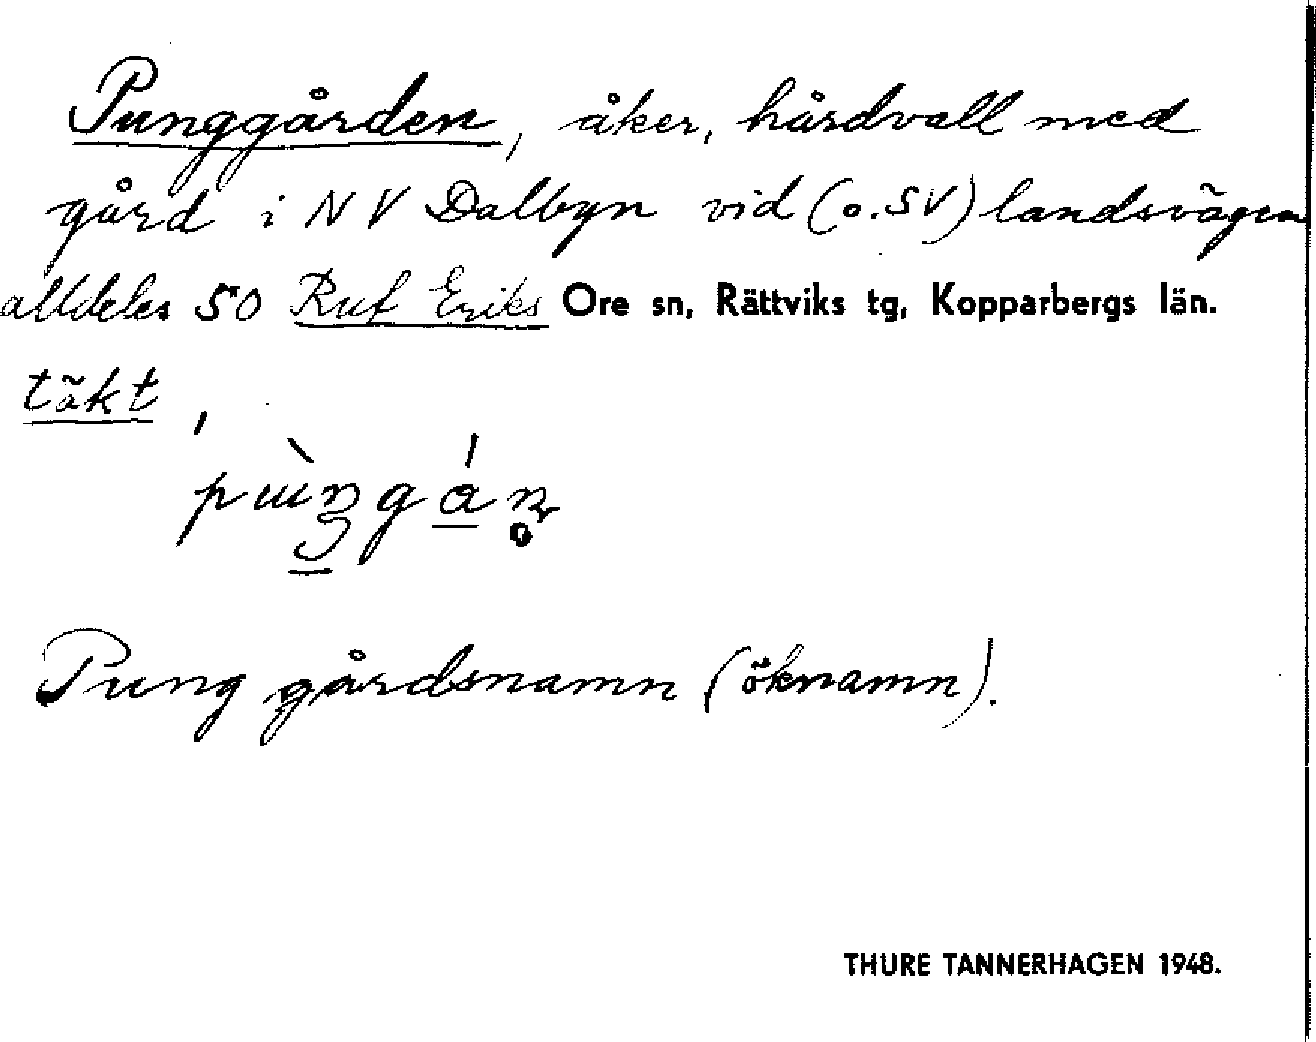 Punggården, åker, hårdvall med
gård i NV Dalbyn vid (o. SV) landsvägen
alldeles SO Ruf Eriks Ore sn, Rättviks tg, Kopparbergs län.
täkt,
Pung gårdsnamn (öknamn).
THURE TANNERHAGEN 1948.